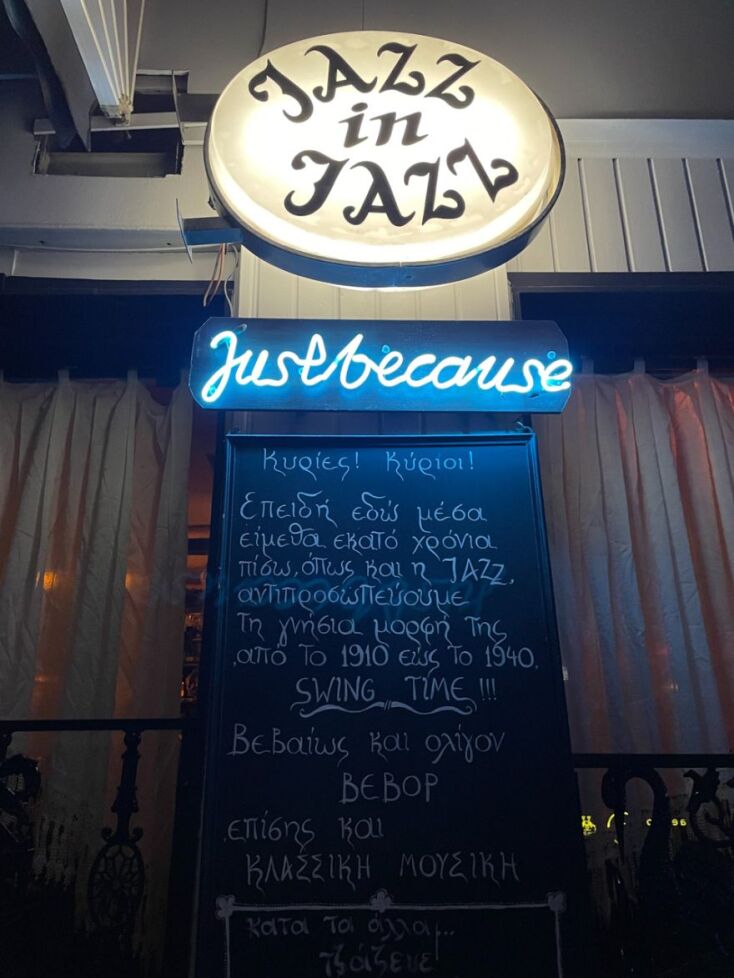 JAZZ
in
JAZZ
Just because
Κυρίες! Κύριοι!
Επειδή εδώ μέσα
είμεθα εκατό χρόνια
πίσω, όπως και η JAZZ,
αντιπροσωπεύουμε
τη γνήσια μορφή της
,από το 1910 εώς το 1940.
SWING TIME!!!
Βεβαίως και ολίγον
BEBOP
,επίσης και
ΚΛΑΣΣΙΚΗ ΜΟΥΣΙΚΗ
κατα τα άλλα...
τζάζευε